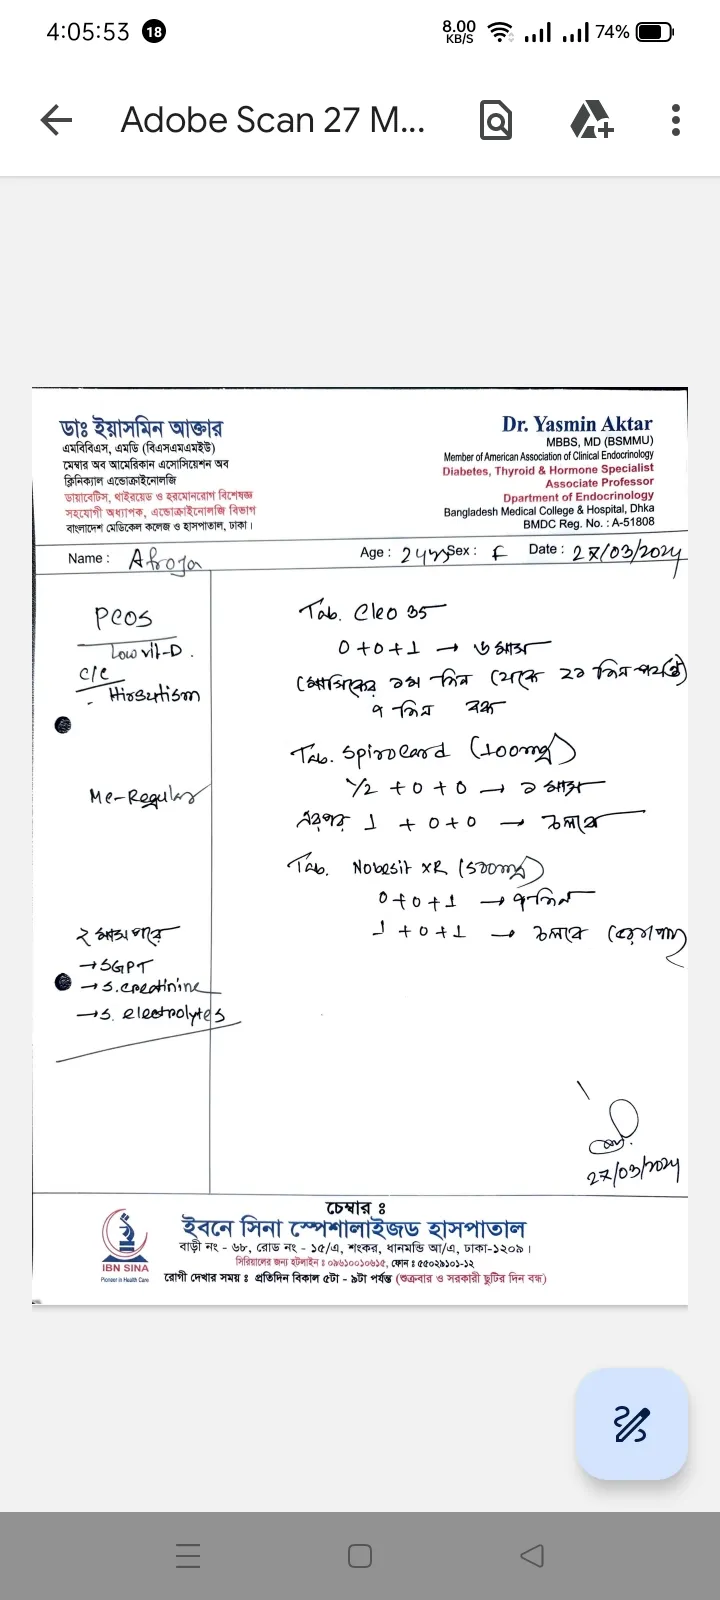 4:05:53 18 8.00 KB/S 74%
Adobe Scan 27 M...
ডাঃ ইয়াসমিন আক্তার
এমবিবিএস, এমডি (বিএসএমএমইউ)
মেম্বার অব আমেরিকান এসোসিয়েশন অব
ক্লিনিক্যাল এন্ডোক্রাইনোলজি
ডায়াবেটিস, থাইরয়েড ও হরমোনরোগ বিশেষজ্ঞ
সহযোগী অধ্যাপক, এন্ডোক্রাইনোলজি বিভাগ
বাংলাদেশ মেডিকেল কলেজ ও হাসপাতাল, ঢাকা।
Dr. Yasmin Aktar
MBBS, MD (BSMMU)
Member of American Association of Clinical Endocrinology
Diabetes, Thyroid & Hormone Specialist
Associate Professor
Dpartment of Endocrinology
Bangladesh Medical College & Hospital, Dhka
BMDC Reg. No. : A-51808
Name : Afroja Age : 24 yrs Sex : F Date : 27/03/2024
PCOS
Low vit-D.
C/C
- Hirsutism
Mc-Regular
২ মাস পরে
→ SGPT
→ S. creatinine
→ S. electrolytes
Tab. Cleo 35
0+0+1 → ৬ মাস
(মাসিকের ১ম দিন থেকে ২১ দিন পর্যন্ত)
৭ দিন বন্ধ
Tab. Spirocard (100mg)
1/2 + 0 + 0 → ১ মাস
এরপর 1 + 0 + 0 → চলবে
Tab. Nobesit XR (500mg)
0+0+1 → ৭ দিন
1+0+1 → চলবে
27/03/2024
চেম্বার ঃ
ইবনে সিনা স্পেশালাইজড হাসপাতাল
বাড়ী নং - ৬৮, রোড নং - ১৫/এ, শংকর, ধানমন্ডি আ/এ, ঢাকা-১২০৯।
সিরিয়ালের জন্য হটলাইন ঃ ০৯৬১০০১০৬১৫, ফোন ঃ ৫৫০২৯১০১-১২
রোগী দেখার সময় ঃ প্রতিদিন বিকাল ৫টা - ৯টা পর্যন্ত (শুক্রবার ও সরকারী ছুটির দিন বন্ধ)
IBN SINA
Pioneer in Health Care